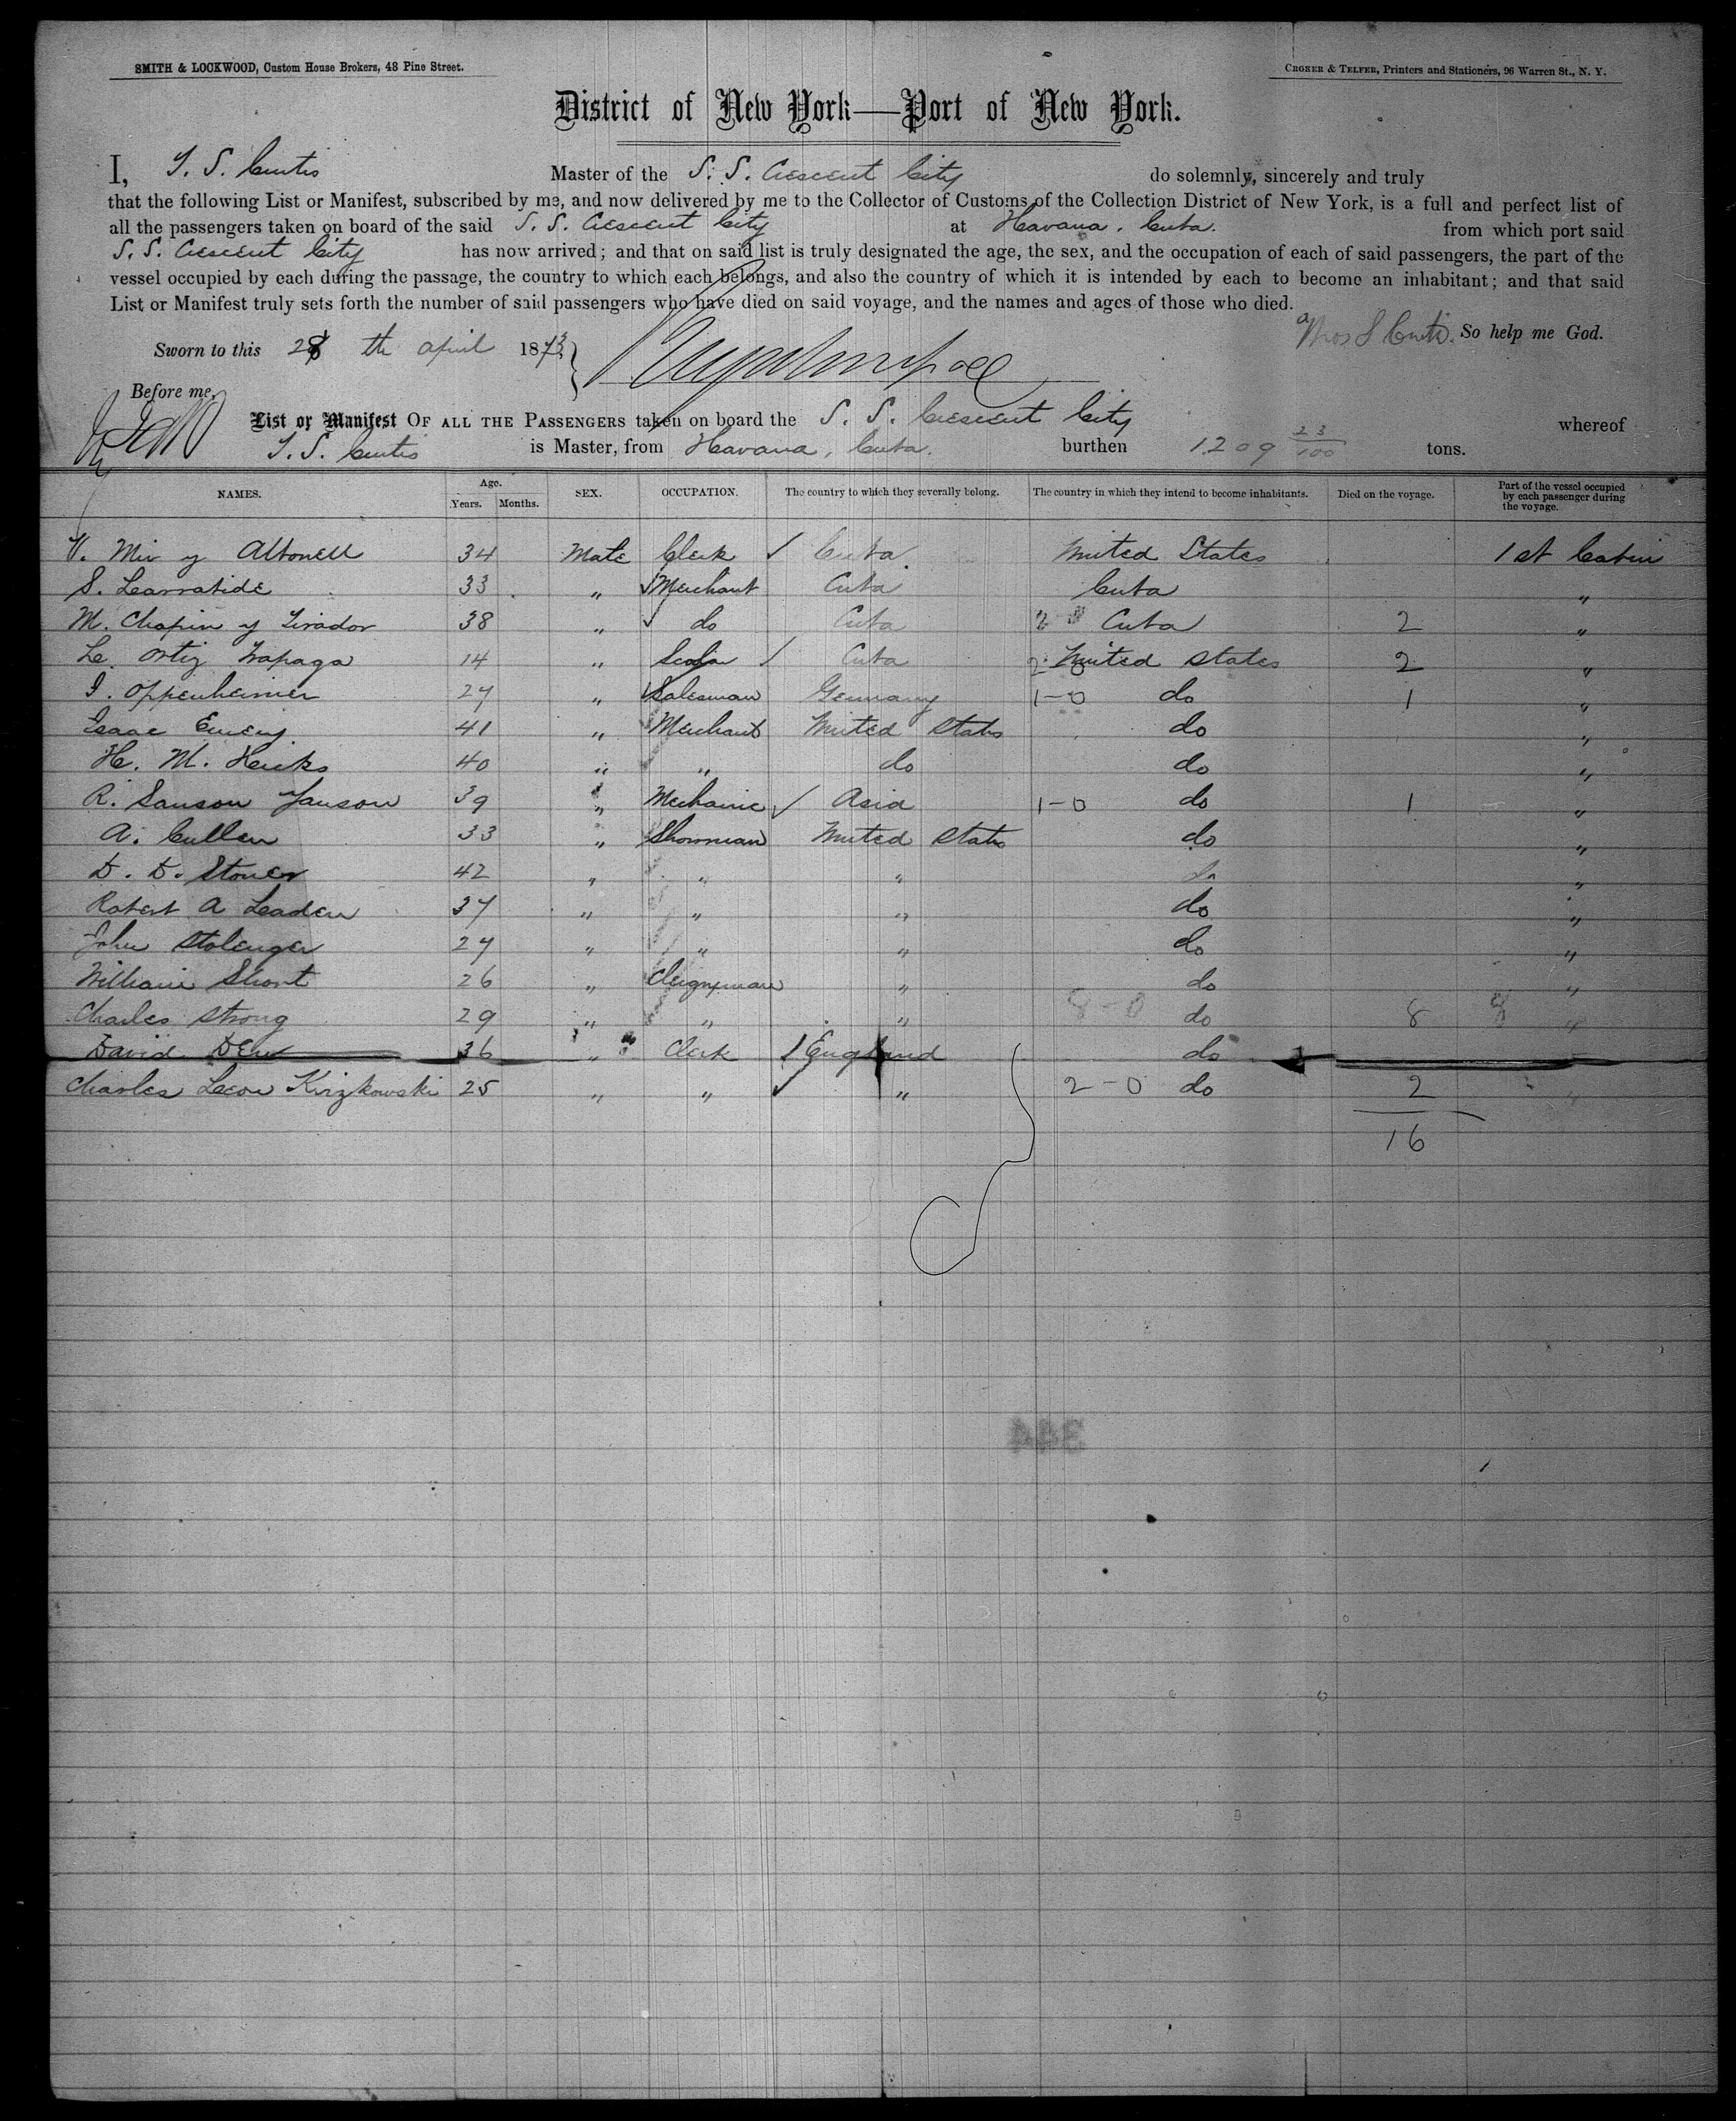 SMITH & LOCKWOOD, Custom House Brokers, 48 Pine Street. CRONER & TELFER, Printers and Stationers, 96 Warren St., N. Y.
District of New York—Port of New York.
I, T. S. Curtis Master of the S. S. Crescent City do solemnly, sincerely and truly
that the following List or Manifest, subscribed by me, and now delivered by me to the Collector of Customs of the Collection District of New York, is a full and perfect list of
all the passengers taken on board of the said S. S. Crescent City at Havana, Cuba. from which port said
S. S. Crescent City has now arrived; and that on said list is truly designated the age, the sex, and the occupation of each of said passengers, the part of the
vessel occupied by each during the passage, the country to which each belongs, and also the country of which it is intended by each to become an inhabitant; and that said
List or Manifest truly sets forth the number of said passengers who have died on said voyage, and the names and ages of those who died.
Thos S Curtis. So help me God.
Sworn to this 28 th april 1873
Before me,
List or Manifest OF ALL THE PASSENGERS taken on board the S. S. Crescent City whereof
T. S. Curtis is Master, from Havana, Cuba. burthen 1209 23/100 tons.
NAMES. Age. Years. Months. SEX. OCCUPATION. The country to which they severally belong. The country in which they intend to become inhabitants. Died on the voyage. Part of the vessel occupied by each passenger during the voyage.
V. Mir y Altonell 34 Male Clerk ✓ Cuba. United States 1st Cabin
S. Larratide 33 " ✓ Merchant Cuba Cuba "
M. Chapin y Tirador 38 " ✓ do Cuba 2 Cuba 2 "
Le. Ortiz Trapaga 14 " ✓ Cuba 2-0 United States 2 "
I. Oppenheimer 27 " ✓ Salesman Germany 1-0 do 1 "
Isaac Emery 41 " Merchant United States do "
H. M. Hicks 40 " " do do "
R. Sanson Janson 39 " Mechanic ✓ Asia 1-0 do 1 "
A. Cullen 33 " Showman United States do "
D. D. Stoner 42 " " " do "
Robert A Leaden 37 " " " do "
John Stolenger 27 " " " do "
William Short 26 " Clergyman " do "
Charles Strong 29 " " " 8-0 do 8 8 "
David Dew 36 " Clerk / England do
Charles Leon Kirzkowski 25 " " ✓ " 2-0 do 2 "
16
344